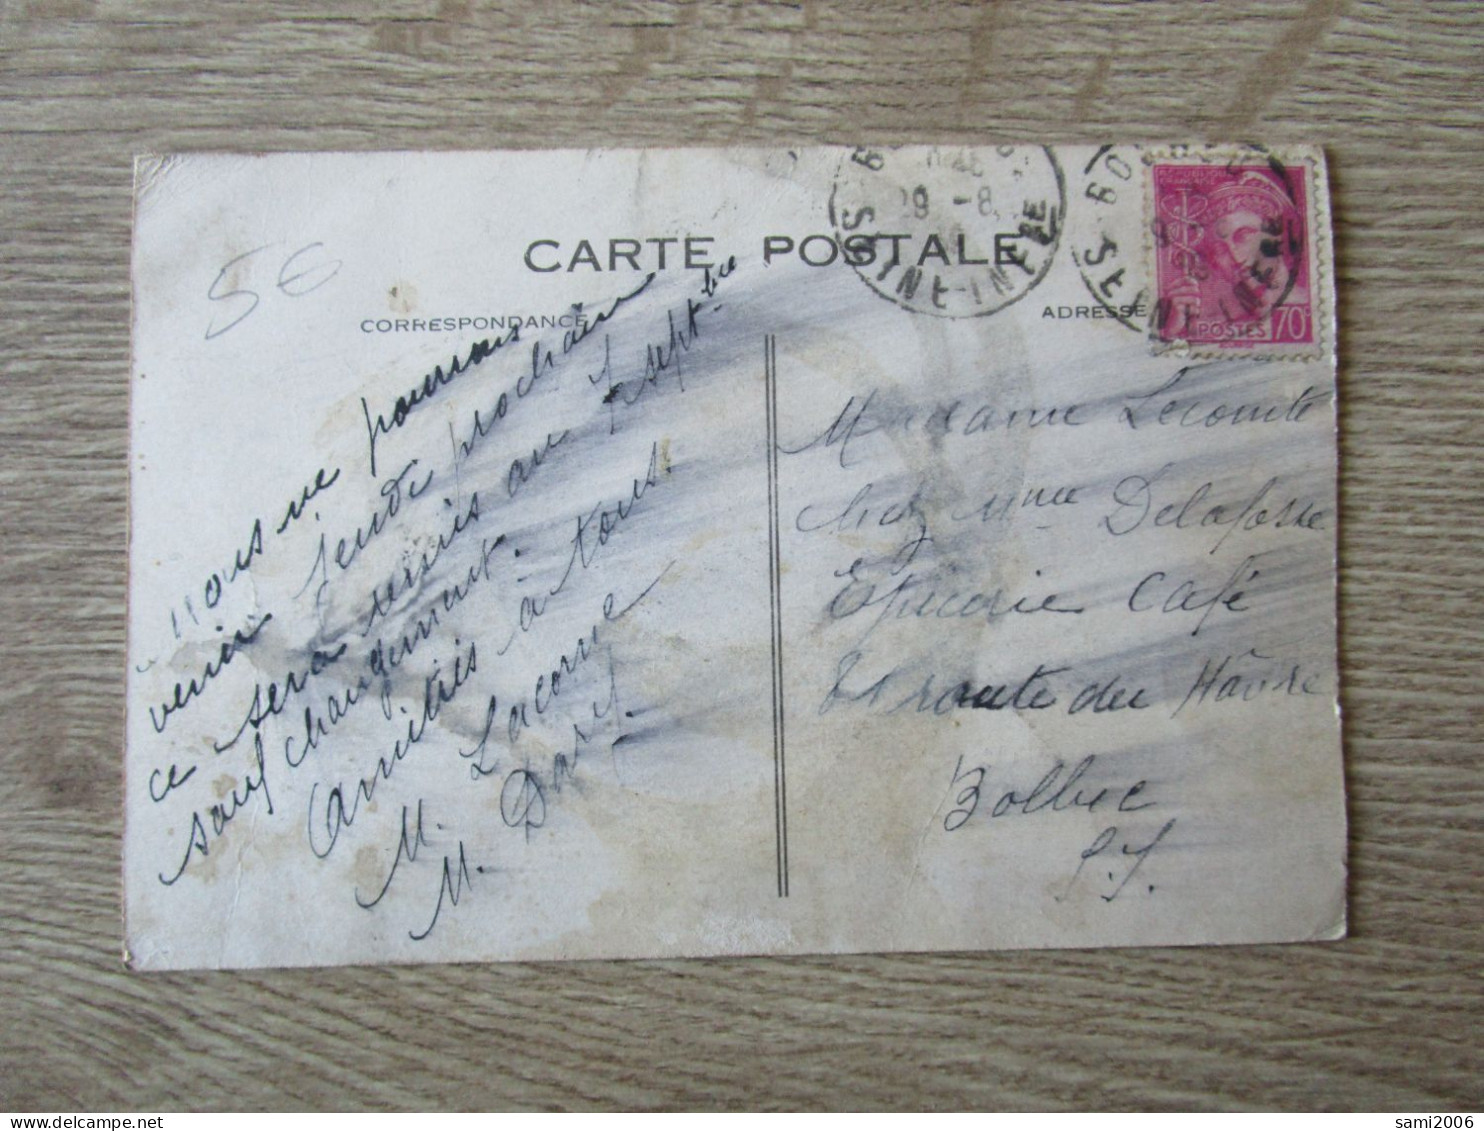 5€
CARTE POSTALE
CORRESPONDANCE
ADRESSE
SEINE-INFRE
29 -8
BOLBEC
SEINE INFRE
POSTES 70c
nous ne pourrons
venir jeudi prochain
ce sera remis au 7 septbre
sauf changement.
Amitiés à tous.
M. Lacorne
M. Dary.
Madame Lecomte
chez Mme Delafosse
Epicerie Café
route du Hâvre
Bolbec
S.I.
sami2006
www.delcampe.net